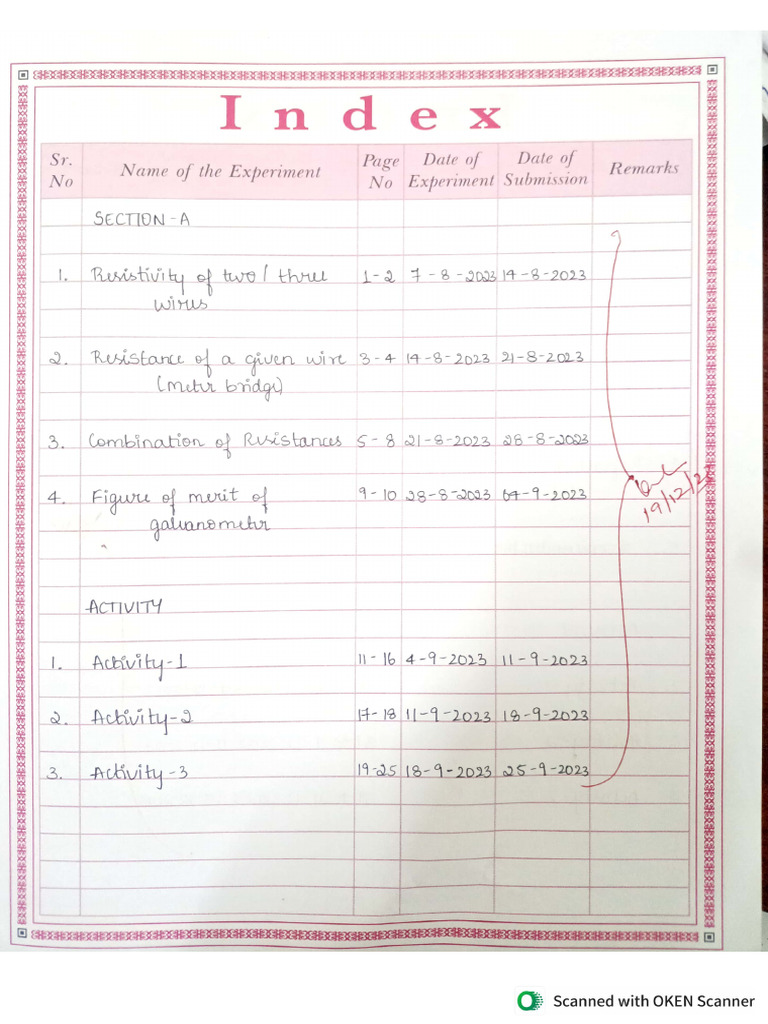 Index
Sr. No Name of the Experiment Page No Date of Experiment Date of Submission Remarks
SECTION-A
1. Resistivity of two/three 1-2 7-8-2023 14-8-2023
wires
2. Resistance of a given wire 3-4 14-8-2023 21-8-2023
(meter bridge)
3. Combination of Resistances 5-8 21-8-2023 28-8-2023
4. Figure of merit of 9-10 28-8-2023 04-9-2023
galvanometer
19/12/23
ACTIVITY
1. Activity-1 11-16 4-9-2023 11-9-2023
2. Activity-2 17-18 11-9-2023 18-9-2023
3. Activity-3 19-25 18-9-2023 25-9-2023
Scanned with OKEN Scanner